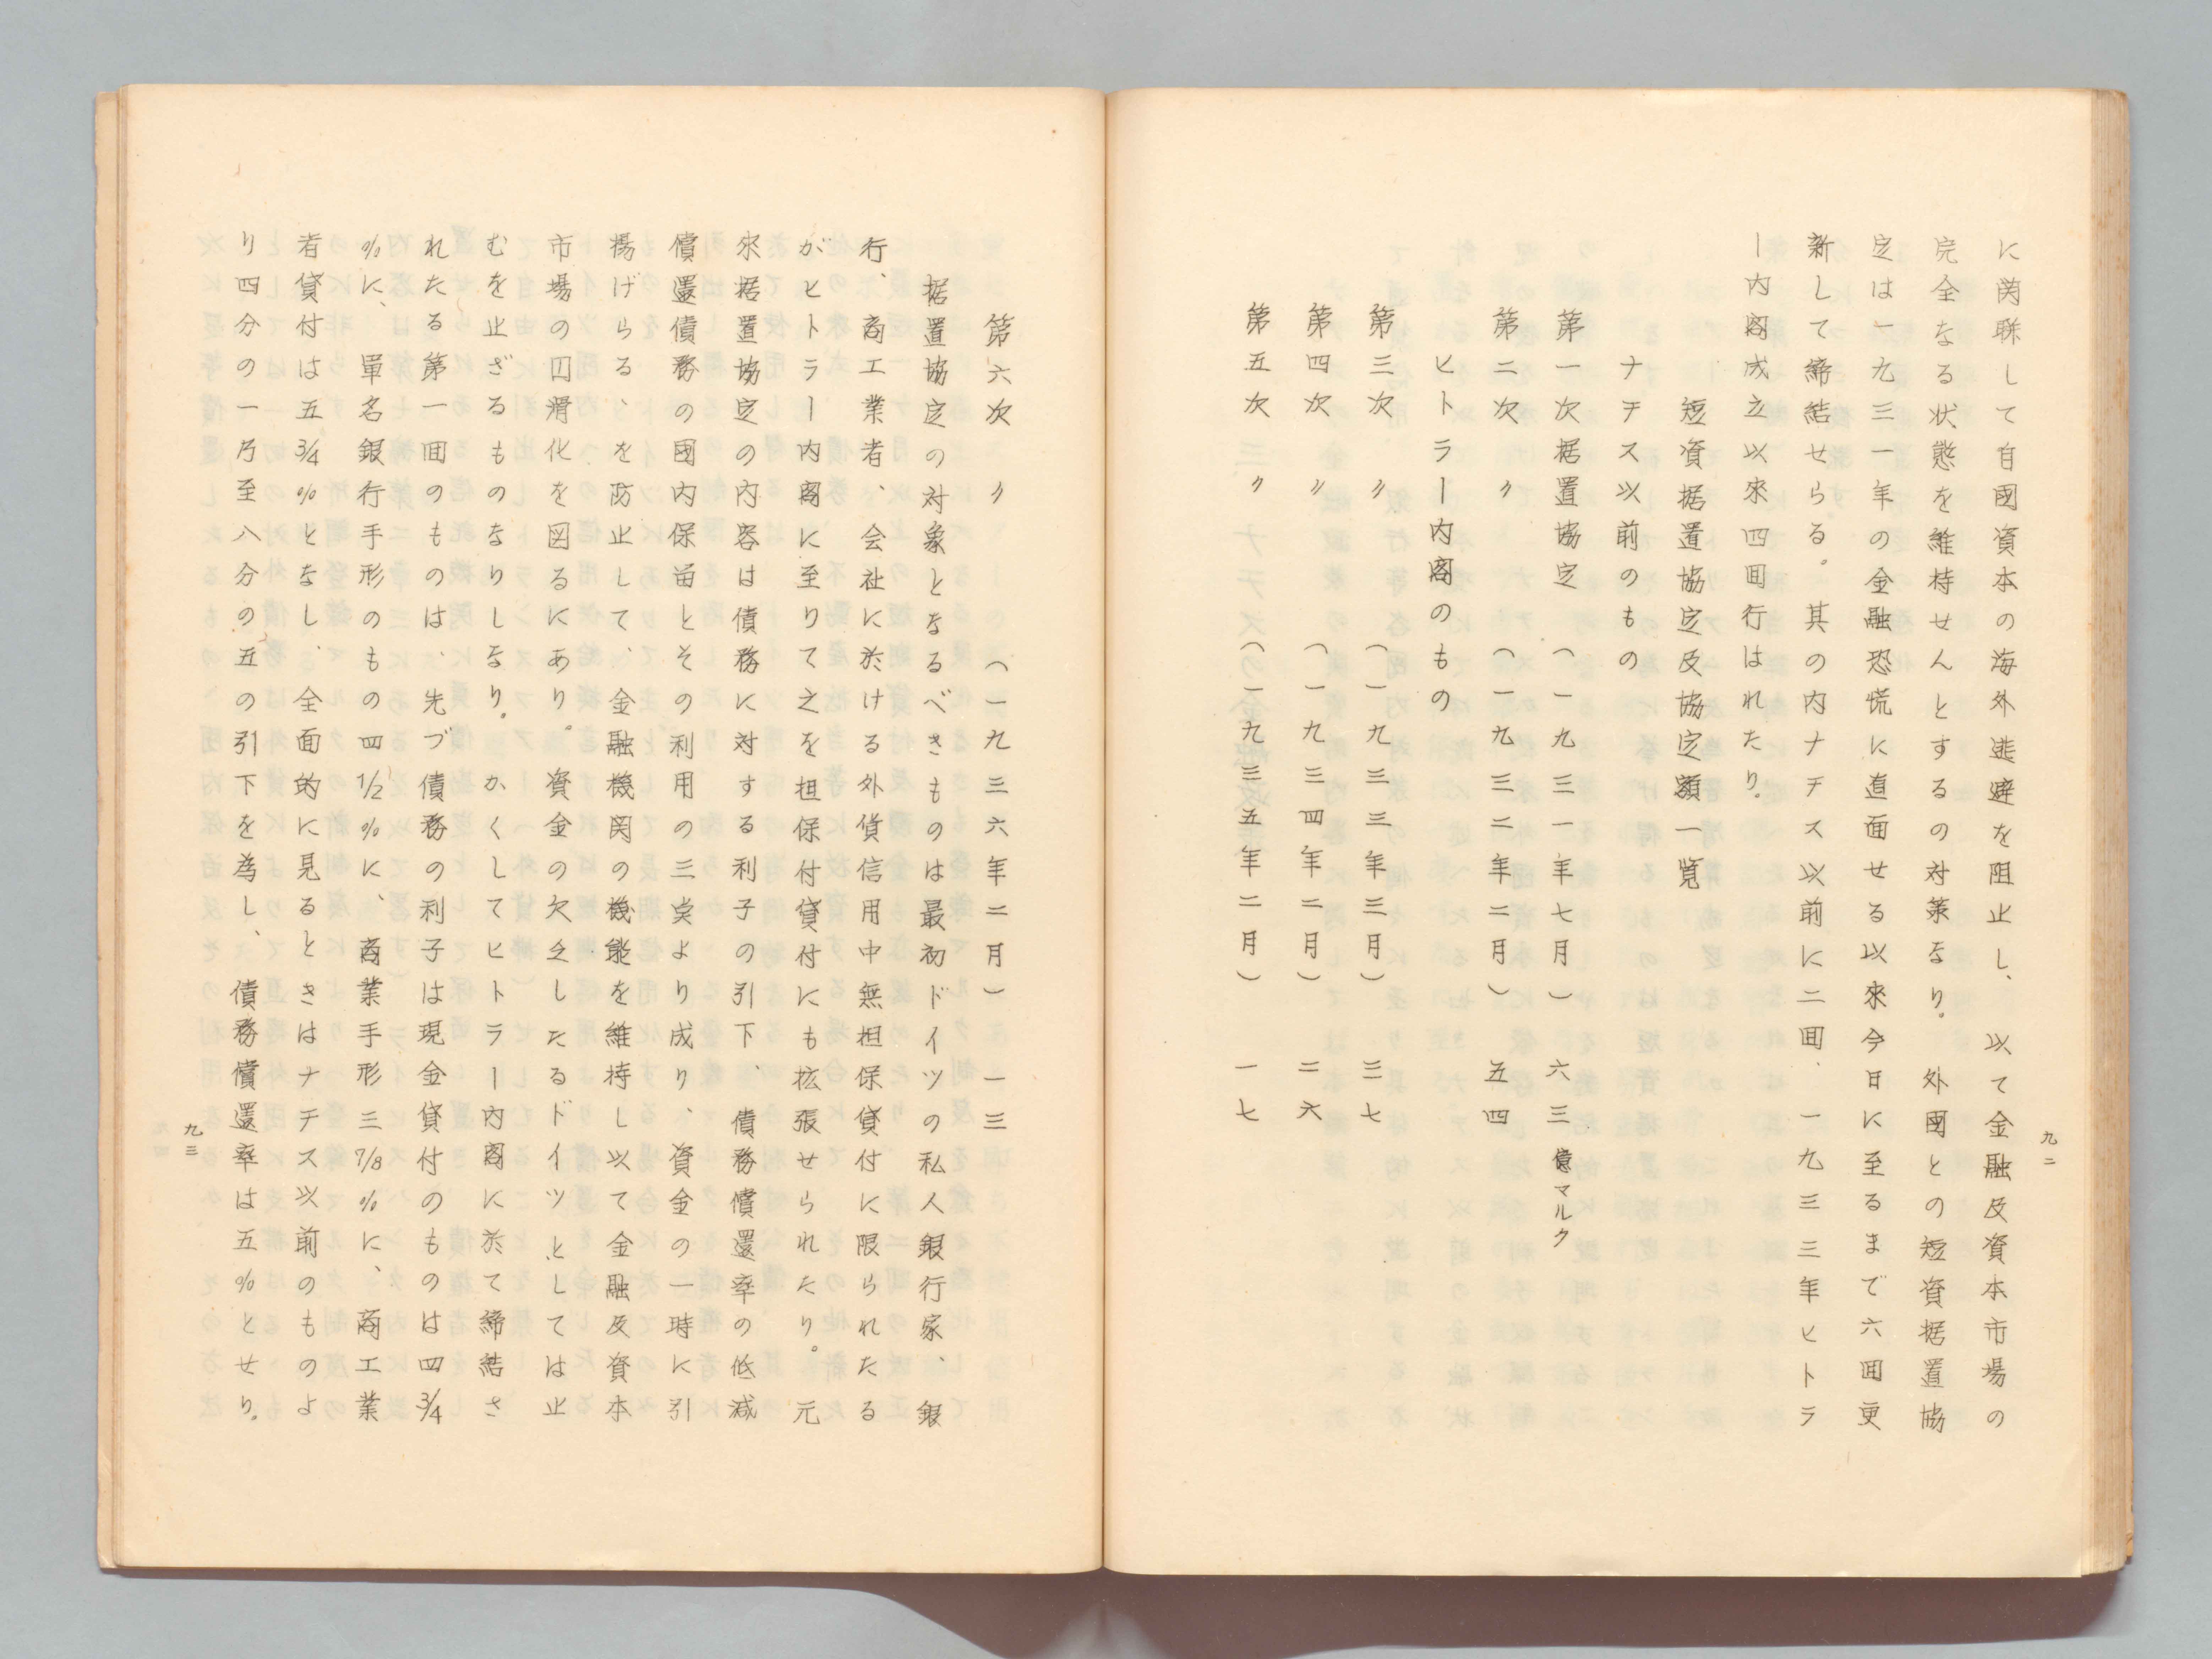 九二
に関聯して自國資本の海外逃避を阻止し、以て金融及資本市場の
完全なる状態を維持せんとするの対策なり。外國との短資据置協
定は一九三一年の金融恐慌に直面せる以來今日に至るまで六囬更
新して締結せらる。其の内ナチス以前に二囬、一九三三年ヒトラ
ー内閣成立以來四囬行はれたり。
短資据置協定及協定額一覧
ナチス以前のもの
第一次据置協定（一九三一年七月）六三億マルク
第二次〃（一九三二年二月）五四
ヒトラー内閣のもの
第三次〃（一九三三年三月）三七
第四次〃（一九三四年二月）二六
第五次〃（一九三五年二月）一七
第六次〃（一九三六年二月）一三
据置協定の対象となるべきものは最初ドイツの私人銀行家、銀
行、商工業者、会社に於ける外貨信用中無担保貸付に限られたる
がヒトラー内閣に至りて之を担保付貸付にも拡張せられたり。元
來据置協定の内容は債務に対する利子の引下、債務償還率の低減
償還債務の國内保畄とその利用の三㸃より成り、資金の一時に引
揚げらるゝを防止して、金融機関の機能を維持し以て金融及資本
市場の円滑化を図るにあり。資金の欠乏したるドイツとしては止
むを止ざるものなりしなり。かくしてヒトラー内閣に於て締結さ
れたる第一囬のものは、先づ債務の利子は現金貸付のものは四3/4
%に、單名銀行手形のもの四1/2%に、商業手形三7/8%に、商工業
者貸付は五3/4%となし、全面的に見るときはナチス以前のものよ
り四分の一乃至八分の五の引下を為し、債務償還率は五%とせり。
九三